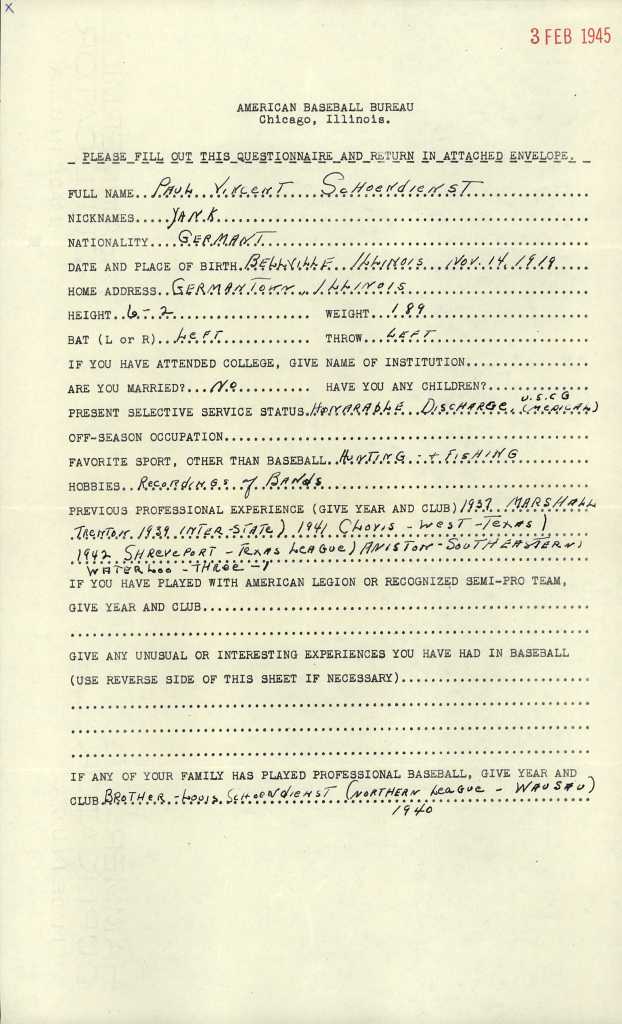 X
3 FEB 1945
AMERICAN BASEBALL BUREAU
Chicago, Illinois.
PLEASE FILL OUT THIS QUESTIONNAIRE AND RETURN IN ATTACHED ENVELOPE.
FULL NAME..PAUL VINCENT SCHOENDIENST
NICKNAMES.....YANK
NATIONALITY....GERMANY
DATE AND PLACE OF BIRTH.BELLVILLE ILLINOIS NOV. 14, 1919
HOME ADDRESS..GERMANTOWN ILLINOIS
HEIGHT..6-2 WEIGHT...189
BAT (L or R)..LEFT THROW...LEFT
IF YOU HAVE ATTENDED COLLEGE, GIVE NAME OF INSTITUTION
ARE YOU MARRIED?...NO HAVE YOU ANY CHILDREN?
PRESENT SELECTIVE SERVICE STATUS.HONARABLE DISCHARGE. U.S.C.G (AMERICAN)
OFF-SEASON OCCUPATION
FAVORITE SPORT, OTHER THAN BASEBALL..HUNTING + FISHING
HOBBIES..RECORDINGS of BANDS
PREVIOUS PROFESSIONAL EXPERIENCE (GIVE YEAR AND CLUB) 1937 MARSHALL
TRENTON 1939 (INTER-STATE) 1941 CLOVIS - WEST-TEXAS)
1942 SHREVEPORT - TEXAS LEAGUE) ANISTON-SOUTHEASTERN)
WATERLOO - THREE-I
IF YOU HAVE PLAYED WITH AMERICAN LEGION OR RECOGNIZED SEMI-PRO TEAM,
GIVE YEAR AND CLUB
GIVE ANY UNUSUAL OR INTERESTING EXPERIENCES YOU HAVE HAD IN BASEBALL
(USE REVERSE SIDE OF THIS SHEET IF NECESSARY)
IF ANY OF YOUR FAMILY HAS PLAYED PROFESSIONAL BASEBALL, GIVE YEAR AND
CLUB BROTHER - LOUIS SCHOENDIENST (NORTHERN LEAGUE - WAUSAU)
1940